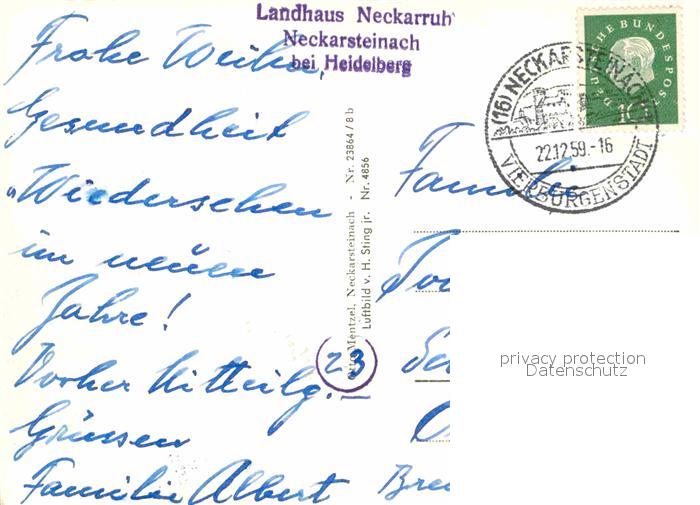 Landhaus Neckarruh
Neckarsteinach
bei Heidelberg
Frohe Weihn,
Gesundheit
Wiedersehen
im neuen
Jahre!
Vorher Mitteilg.
Grüssen
Familie Albert
Mentzel, Neckarsteinach - Nr. 23864/8 b
Luftbild v. H. Sting jr. Nr. 4856
23
DEUTSCHE BUNDESPOST
10
(16) NECKARSTEINACH
22.12.59.-16
VIERBURGENSTADT
Familie
Bre
privacy protection
Datenschutz